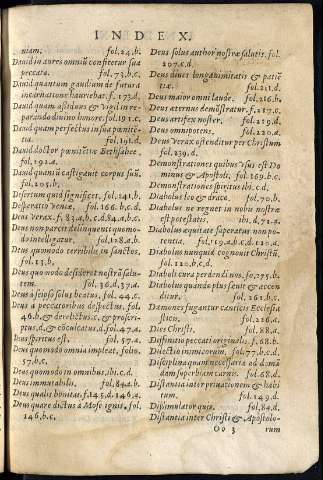 INDEX.
niam. fol.24.b.
David in aures omniũ confitetur sua
peccata. fol.73.b.c.
David quantum gaudium de futura
incarnatione hauserat. f.273.d.
David quam assiduus & vigil in re-
parando divino honore. fol.191.c.
David quam perfectus in sua pœnitẽ-
tia. fol.191.d.
David doctor pœnitẽtiæ Bethsabee.
fol.191.a.
David quam ũ castigavit corpus suũ.
fol.205.b.
Disertum quid significet. fol.241.b.
Desperatio venia. fol.166.b.c.d.
Deus verax. f.83.a,b,c.d.84.a,b.c.
Deus non parcit delinquenti quomo-
do intelligatur. fol.128.a.b.
Deus quomodo terribilis in sanctos.
fol.13.b.
Deus quomodo desideret nostrã salu-
tem. fol.36.d.37.a.
Deus a seipso solus beatus. fol.44.c.
Deus a peccatoribus despectus. fol.
46.b. & derelictus.c. & proscri-
ptus.d. & cõculcatus.d. fol.47.a.
Deus spiritus est. fol.57.a.
Deus quomodo omnia impleat. folio.
57.b.c.
Deus quomodo in omnibus. ibi.c.d.
Deus immutabilis. fol.84.a.b.
Deus qualis bonitas. f.145.d.146.a.
Deus quare dictus à Mose ignis. fol.
146.b.c.
Deus solus author nostræ salutis. fol.
207.c.d.
Deus dives longanimitatis & patiẽ-
tiæ. fol.211.d.
Deus maior omni laude. fol.216.b.
Deus æternus demõstratur. f.217.c.
Deus artifex noster. fol.219.d.
Deus omnipotens. fol.220.a.
Deus verax ostenditur per Christum
fol.239.d.
Demonstrationes quibus usus est Do
minus & Apostoli. fol.169.b.c.
Demonstrationes spiritus ibi.c.d.
Diabolus leo & draco. fol.70.b.
Diabolus ne regnet in nobis nostræ
est potestatis. ibi.d.71.a.
Diabolus æquitate superatus non po-
tentia. fol.119.a.b.c.d.120.a.
Diabolus nunquid cognovit Christũ.
fol.120.b.c.d.
Diaboli cura perdendi nos. fo.255.b.
Diabolus quando plus sævit & accen
ditur. fol.261.b.c.
Dæmones fugantur canticis Ecclesia
stico. fol.216.a.
Dies Christi. fol.88.a.
Diffinitio peccati originalis. f.68.b.
Dilectio inimicorum. fol.77.b.c.d.
Disciplina quam necessaria ad edomã
dam superbiam carnis. fol.68.d.
Distantia inter privationem & habi
tum. fol.149.d.
Dissimulator quis. fol.84.d.
Distantia inter Christi & Apostolo-
Oo 3 rum